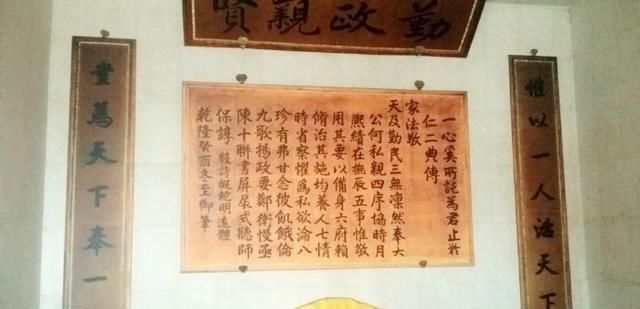 勤政親賢
惟以一人治天下
一心奚所託為君止於
仁二典傳
家法敬
天及勤民三無凜然奉大
公何私親四序協時月
熙績在撫辰五事惟敬
用其要以備身六府賴
脩治其施均養人七情
時省察懼為私欲淪八
珍有弗甘念彼飢餓倫
九歌楊政要鄭衛慢亟
陳十聯書屏扆式聽師
保諄 數詩擬鮑明遠體
乾隆癸酉冬至御筆
豈為天下奉一